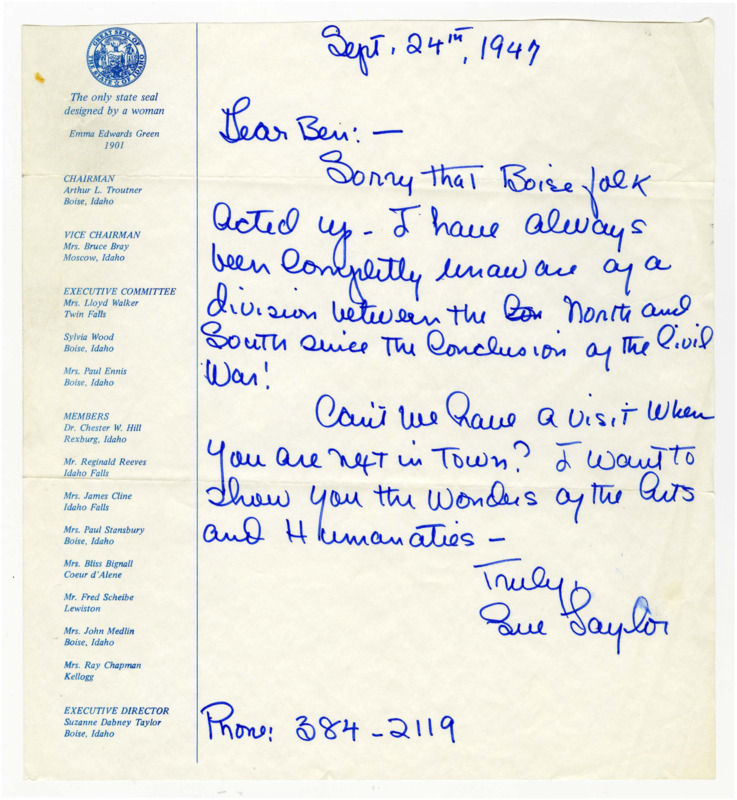 GREAT SEAL OF
THE STATE OF IDAHO
The only state seal
designed by a woman
Emma Edwards Green
1901
CHAIRMAN
Arthur L. Troutner
Boise, Idaho
VICE CHAIRMAN
Mrs. Bruce Bray
Moscow, Idaho
EXECUTIVE COMMITTEE
Mrs. Lloyd Walker
Twin Falls
Sylvia Wood
Boise, Idaho
Mrs. Paul Ennis
Boise, Idaho
MEMBERS
Dr. Chester W. Hill
Rexburg, Idaho
Mr. Reginald Reeves
Idaho Falls
Mrs. James Cline
Idaho Falls
Mrs. Paul Stansbury
Boise, Idaho
Mrs. Bliss Bignall
Coeur d'Alene
Mr. Fred Scheibe
Lewiston
Mrs. John Medlin
Boise, Idaho
Mrs. Ray Chapman
Kellogg
EXECUTIVE DIRECTOR
Suzanne Dabney Taylor
Boise, Idaho
Sept. 24th, 1947
Dear Ben: —
Sorry that Boise folk
acted up - I have always
been completly unaware of a
division between the North and
South since the Conclusion of the Civil
War!
Can't we have a visit when
you are next in Town? I want to
show you the wonders of the Arts
and Humanaties —
Truly,
Sue Taylor
Phone: 384-2119